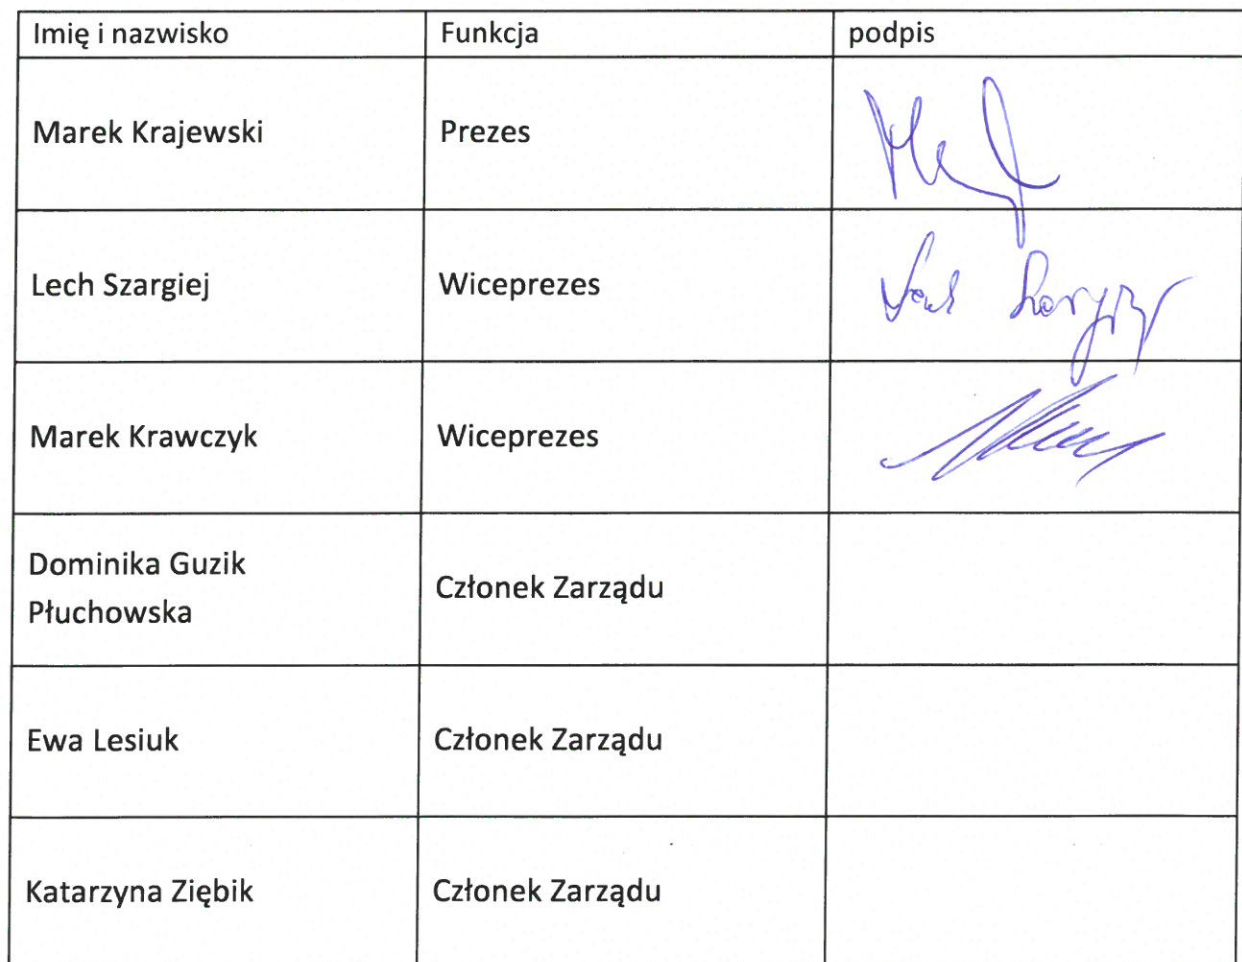 Imię i nazwisko Funkcja podpis
Marek Krajewski Prezes
Lech Szargiej Wiceprezes
Marek Krawczyk Wiceprezes
Dominika Guzik
Płuchowska Członek Zarządu
Ewa Lesiuk Członek Zarządu
Katarzyna Ziębik Członek Zarządu